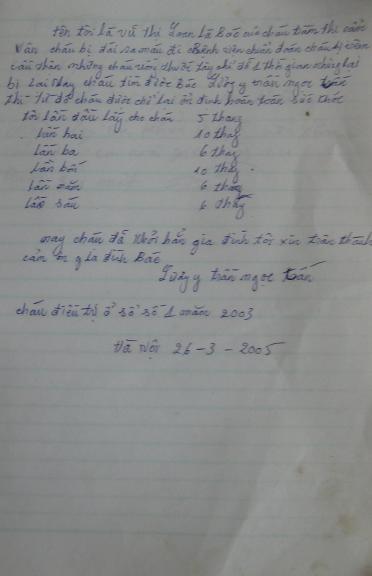 tên tôi là vũ thị Loan là Bác của cháu tăm thị cẩm
Vân cháu bị đái ra máu đi Bệnh viện chuẩn đoán cháu bị viêm
cầu thân những cháu uống thuốc tây chỉ đỡ 1 thời gian những lại
bị lại may cháu tìm được Bác Lương y trần ngọc
thì từ đó cháu được chữ lại ổn định hoàn toàn sức khỏe
tôi lần đầu lấy cho cháu 5 thang
lần hai 10 thag
lần ba 6 thag
lần bốn 10 thag
lần năm 6 thag
lần sáu 6 thag
nay cháu đã khỏi hẳn gia đình tôi xin trân thành
cảm ơn gia đình Bác
Lương y trần ngọc
cháu điều trị ở sổ số 1 năm 2003
Hà Nội 26-3-2005